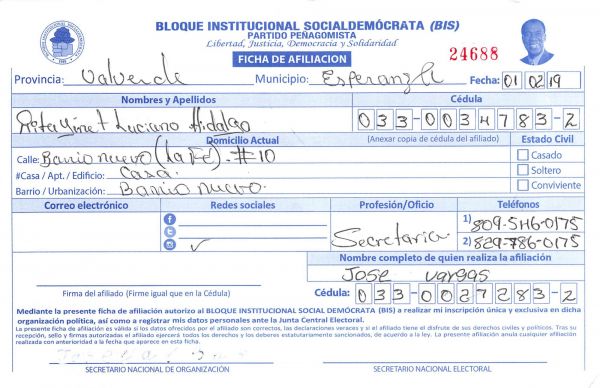 BLOQUE INSTITUCIONAL SOCIALDEMÓCRATA (BIS)
PARTIDO PEÑAGOMISTA
Libertad, Justicia, Democracia y Solidaridad
24688
FICHA DE AFILIACION
Provincia: Valverde Municipio: Esperanza Fecha: 01 02 19
Nombres y Apellidos Cédula
Luciano Hidalgo 033-0034783-2
Domicilio Actual (Anexar copia de cédula del afiliado) Estado Civil
Calle: Barrio nuevo (La Fe). #10 Casado
#Casa / Apt. / Edificio: Casa. Soltero
Barrio / Urbanización: Barrio nuevo. Conviviente
Correo electrónico Redes sociales Profesión/Oficio Teléfonos
1) 809-546-0175
Secretaria 2) 829-786-0175
Nombre completo de quien realiza la afiliación
Jose Vargas
Firma del afiliado (Firme igual que en la Cédula) Cédula: 033-0027283-2
Mediante la presente ficha de afiliación autorizo al BLOQUE INSTITUCIONAL SOCIAL DEMÓCRATA (BIS) a realizar mi inscripción única y exclusiva en dicha
organización política, así como a registrar mis datos personales ante la Junta Central Electoral.
La presente ficha de afiliación es válida si los datos ofrecidos por el afiliado son correctos, las declaraciones veraces y si el afiliado tiene el disfrute de sus derechos civiles y políticos. Tras su
recepción, sello y firmas autorizadas el afiliado ejercerá todos los derechos y los deberes estatutariamente sancionados, de acuerdo a la ley. La presente afiliación anula cualquier afiliación
realizada con anterioridad a la fecha que aparece en esta ficha.
SECRETARIO NACIONAL DE ORGANIZACIÓN SECRETARIO NACIONAL ELECTORAL